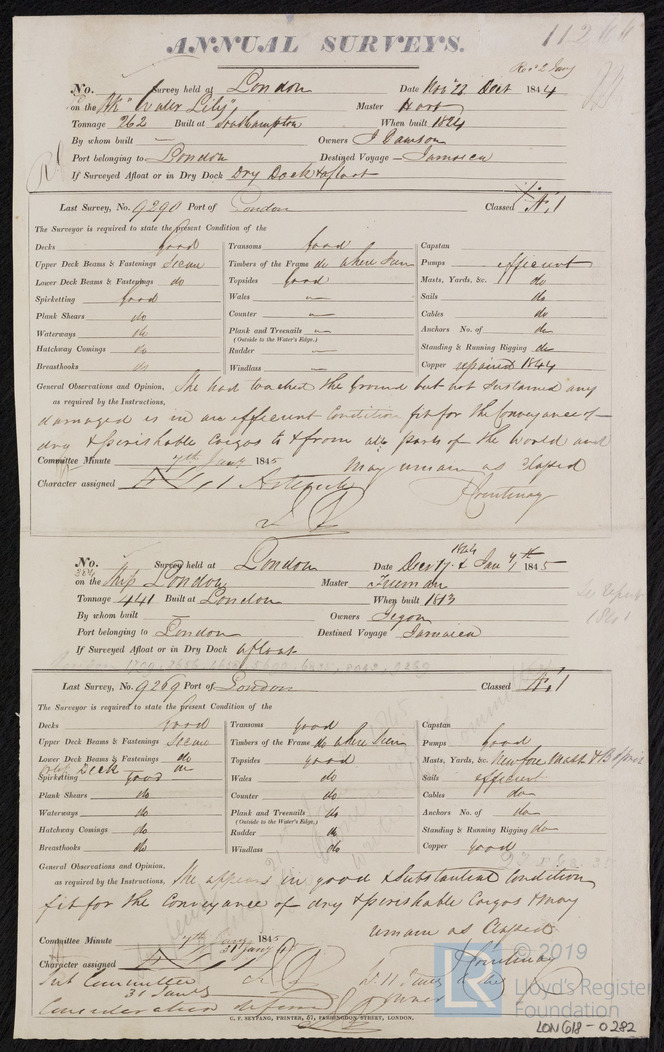 11266
ANNUAL SURVEYS.
Rec'd 2 Jany
No. Survey held at London Date Nov 22 Dect 1844
on the Bk "Water Lily", Master
Tonnage 262 Built at Southampton When built 1824
By whom built — Owners J Dawson
Port belonging to London Destined Voyage – Jamaica
If Surveyed Afloat or in Dry Dock Dry Dock & afloat
Last Survey, No. 9290 Port of London Classed A.1
The Surveyor is required to state the present Condition of the
Decks good Transoms good Capstan
Upper Deck Beams & Fastenings Secure Timbers of the Frame do where seen Pumps efficient
Lower Deck Beams & Fastenings do Topsides good Masts, Yards, &c. do
Spirketting good Wales — Sails do
Plank Shears do Counter — Cables do
Waterways do Plank and Treenails — Anchors No. of do
(Outside to the Water's Edge.)
Hatchway Comings do Rudder — Standing & Running Rigging do
Breasthooks do Windlass — Copper repaired 1844
General Observations and Opinion, She had touched the Ground but not sustained any
as required by the Instructions,
damaged is in an efficient Condition fit for the Conveyance of
dry & perishable Cargos to & from all parts of the World and
Committee Minute 7th Jany 1845 May remain as Classed
Character assigned 1 Courtenay
No. Survey held at London Date Decr 17 1844 & Jany 7th 1845
on the Ship London Master Freeman
Tonnage 441 Built at London When built 1813
By whom built — Owners
Port belonging to London Destined Voyage Jamaica
If Surveyed Afloat or in Dry Dock afloat
Last Survey, No. 9269 Port of London Classed A.1
The Surveyor is required to state the present Condition of the
Decks good Transoms good Capstan
Upper Deck Beams & Fastenings Secure Timbers of the Frame do where seen Pumps good
Lower Deck Beams & Fastenings do Topsides good Masts, Yards, &c. New fore Mast & B Sprit
Deck do
Spirketting good Wales do Sails efficient
Plank Shears do Counter do Cables do
Waterways do Plank and Treenails do Anchors No. of do
(Outside to the Water's Edge.)
Hatchway Comings do Rudder do Standing & Running Rigging do
Breasthooks do Windlass do Copper good
General Observations and Opinion, She appears in good & Substantial Condition
as required by the Instructions,
fit for the Conveyance of dry & perishable Cargos & may
remain as Classed
Committee Minute 7th Jany 1845 Courtenay
31 Jany
Character assigned
Sub Committee
31 Jany
Consideration deferred
C. F. SEYFANG, PRINTER, 57, FARRINGDON STREET, LONDON.
© 2019
LR Lloyd's Register
Foundation
LON618-0282